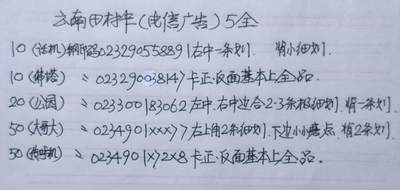 云南田村卡(电信广告)5全
10(话机)钢印码0232905588891右中一条划. 背小细划.
10(佛塔) 〃 02329003814〉卡正.反面基本上全品.
20(公园) 〃 02330018306２左中.右中边合2.3条极细划.背一条划.
50(大哥大) 〃 0234901xxx〉〉右上角2条细划.下边小小瘾点.背2条划.
50(传呼机) 〃 0234901x〉2x8 卡正.反面基本上全品.